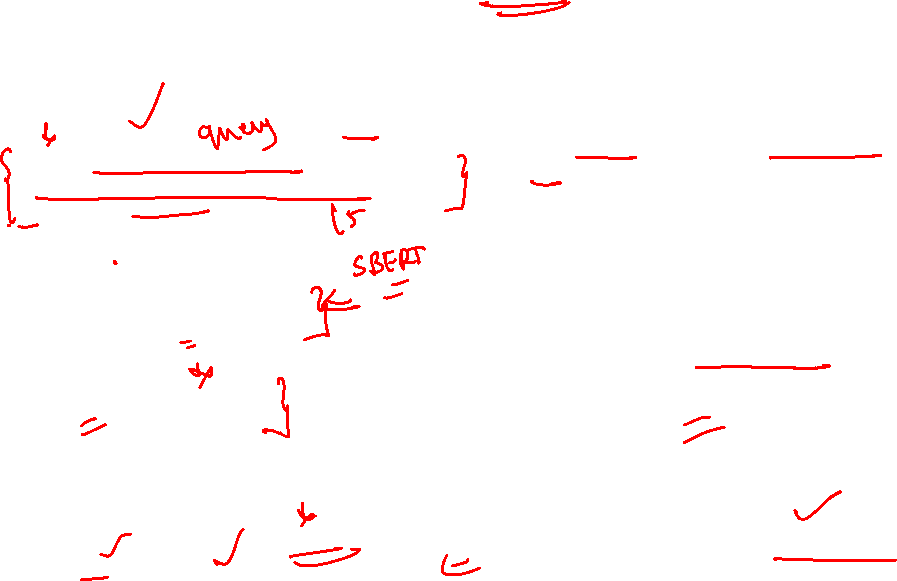 query
5
SBERT